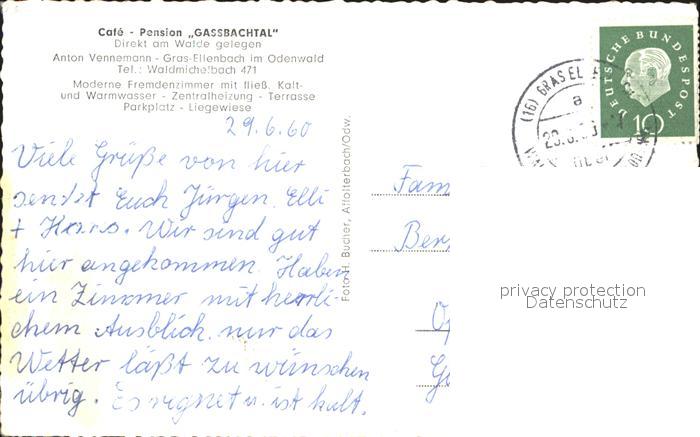 Café - Pension „GASSBACHTAL"
Direkt am Walde gelegen
Anton Vennemann - Gras-Ellenbach im Odenwald
Tel.: Waldmichelbach 471
Moderne Fremdenzimmer mit fließ. Kalt-
und Warmwasser - Zentralheizung - Terrasse
Parkplatz - Liegewiese
29.6.60
Viele Grüße von hier
sendet Euch Jürgen. Elli
+ Hans. Wir sind gut
hier angekommen. Haben
ein Zimmer mit herrli-
chem Ausblick nur das
Wetter läßt zu wünschen
übrig. Es regnet u. ist kalt.
Foto H. Bucher, Affolterbach/Odw.
DEUTSCHE BUNDESPOST
10
(16) GRAS EL
a
Fam
Ber
privacy protection
Datenschutz